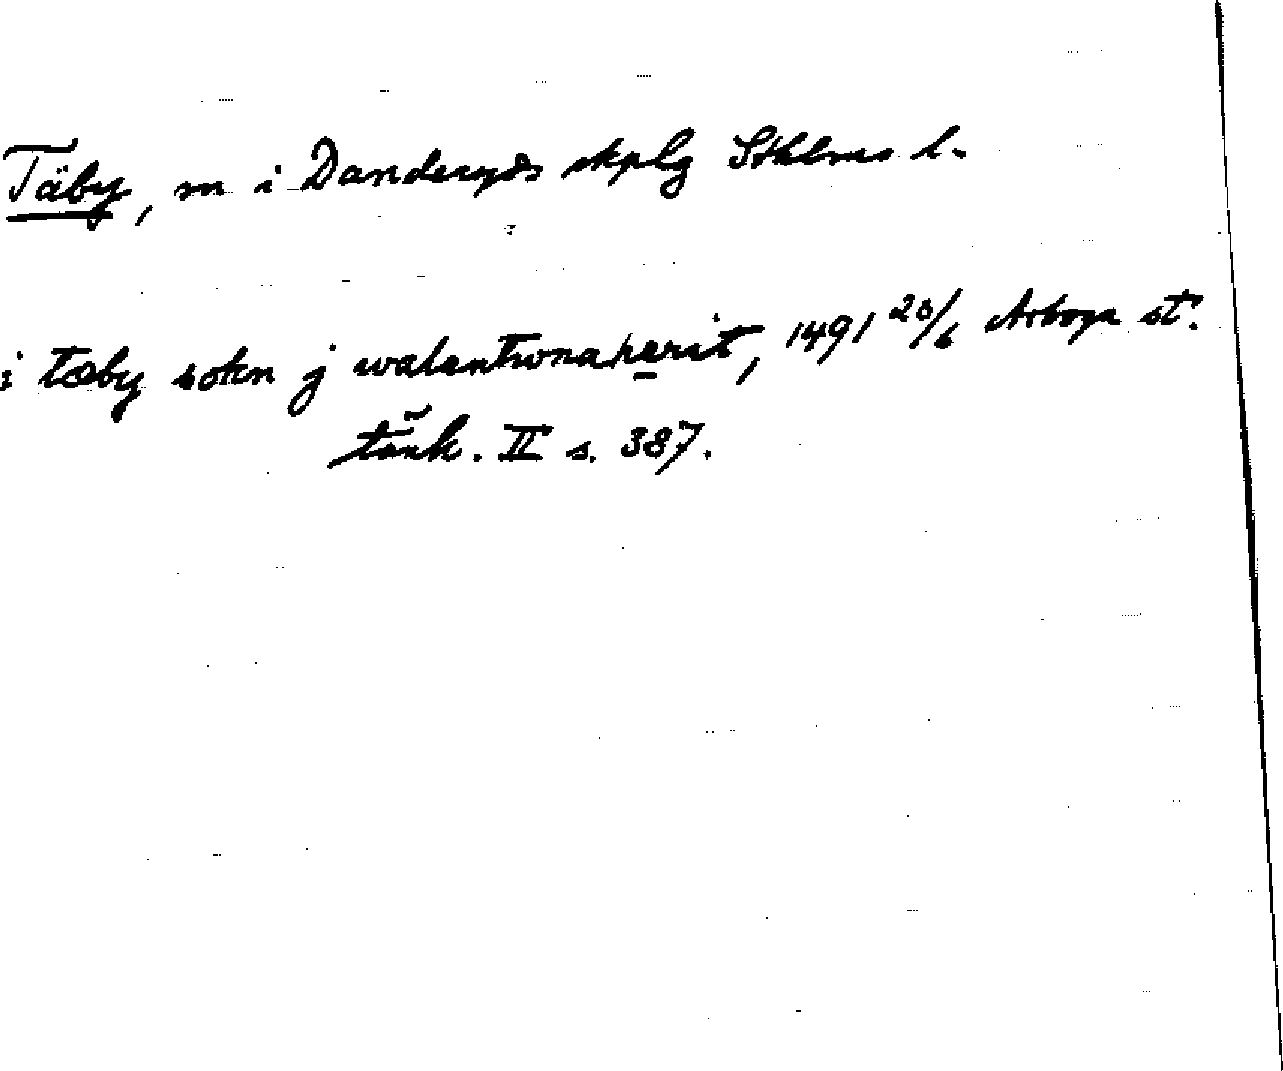 Täby, sn i Danderyds skplg Sthlms l.
i tæby sokn j walantwnahærit, 1491 20/6 Arboga st.
tänk. II s. 387.